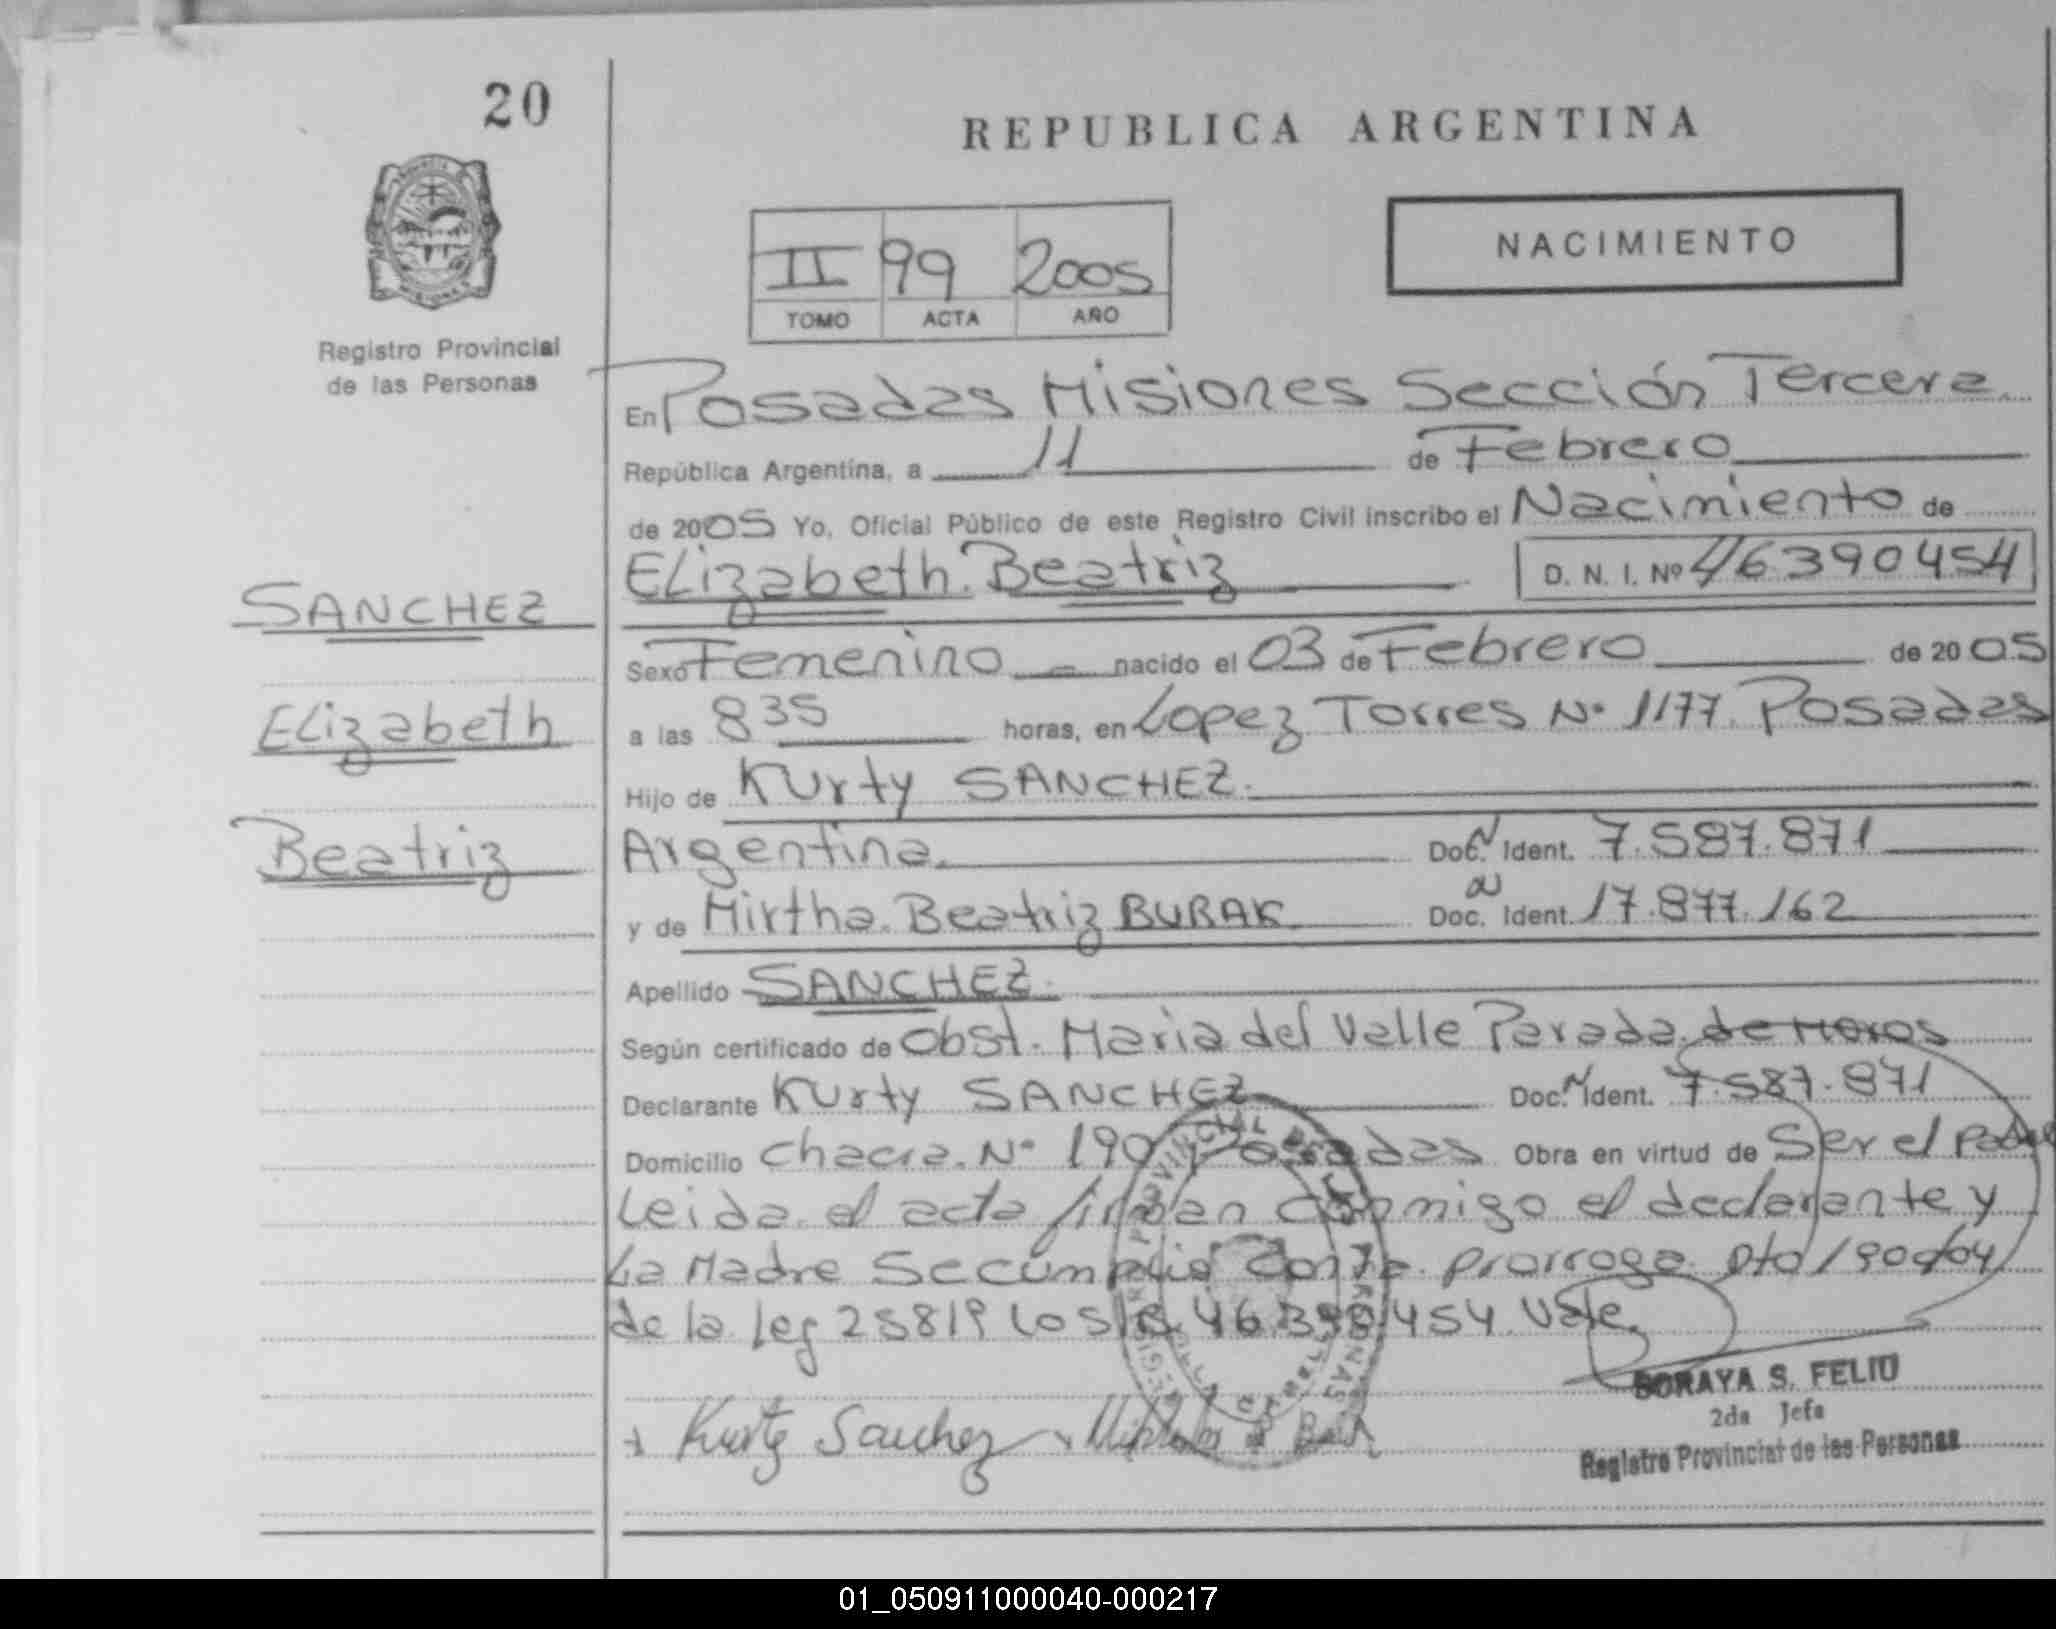 20
REPUBLICA ARGENTINA
NACIMIENTO
II 99 2005
TOMO ACTA AÑO
Registro Provincial
de las Personas
En Posadas Misiones Sección Tercera
República Argentina, a 11 de Febrero
de 2005 Yo, Oficial Público de este Registro Civil inscribo el Nacimiento de
Elizabeth Beatriz D. N. I. Nº 46390454
SANCHEZ
Elizabeth
Beatriz
Sexo Femenino nacido el 03 de Febrero de 2005
a las 8 35 horas, en Lopez Torres Nº 1177 Posadas
Hijo de Kurty SANCHEZ.
Argentina. Doc. Ident. 7.587.871
y de Mirtha Beatriz BURAK Doc. Ident. 17.877.162
Apellido SANCHEZ.
Según certificado de Obst. Maria del Valle Parada de Moros
Declarante Kurty SANCHEZ Doc. Ident. 7.587.871
Domicilio Chacra Nº 190 Posadas Obra en virtud de Ser el Padre
Leida el acta firman conmigo el declarante y
La Madre Se prorroga Dto
de la Ley 25819 46.390.454 Vale.
Kurty Sanchez
SORAYA S. FELIU
2da Jefa
Registro Provincial de las Personas
01_050911000040-000217